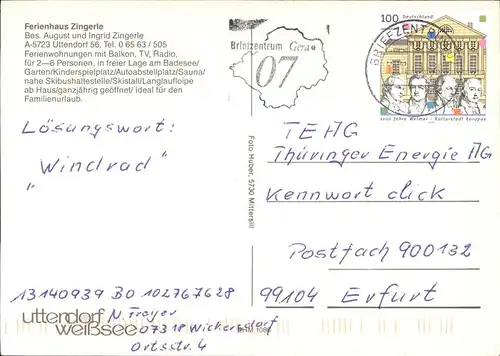 Ferienhaus Zingerle
Bes. August und Ingrid Zingerle
A-5723 Uttendorf 56, Tel. 0 65 63 / 505
Ferienwohnungen mit Balkon, TV, Radio,
für 2—6 Personen, in freier Lage am Badesee/
Garten/Kinderspielplatz/Autoabstellplatz/Sauna/
nahe Skibushaltestelle/Skistall/Langlaufloipe
ab Haus/ganzjährig geöffnet/ ideal für den
Familienurlaub.
Briefzentrum Gera
07
100 Deutschland
BRIEFZENTRUM
1100 Jahre Weimar - Kulturstadt Europas
Lösungswort:
"Windrad"
Foto Huber, 5730 Mittersill
TEAG
Thüringer Energie AG
Kennwort click
Postfach 900132
99104 Erfurt
13140939 BO 102767628
N. Troyer
07318 Wickersdorf
Ortsstr. 4
uttendorf
weißsee